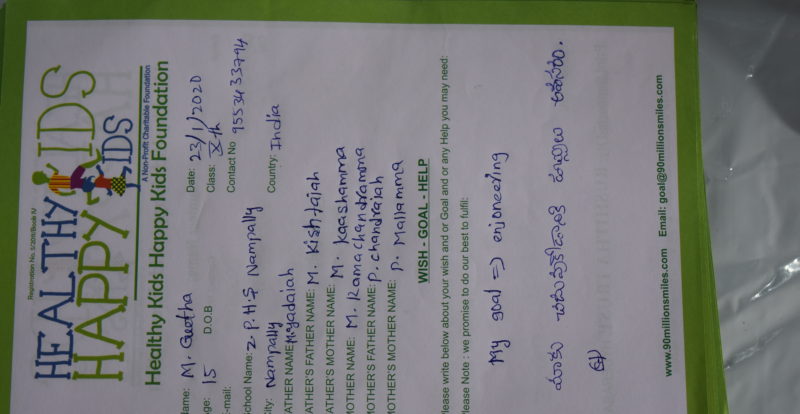 Registration No. 5/2011/Book IV
HEALTHY KIDS
HAPPY KIDS
A Non-Profit Charitable Foundation
Healthy Kids Happy Kids Foundation
ame: M. Geetha Date: 23/1/2020
ge: 15 D.O.B Class: Xth
-mail: Contact No 9553433794
chool Name: Z.P.H.S Nampally
ity: Nampally Country: India
ATHER NAME: M.yadaiah
ATHER'S FATHER NAME: M. Kishtaiah
ATHER'S MOTHER NAME: M. Kaashamma
OTHER NAME: M. Ramachandramma
OTHER'S FATHER NAME: P. chandraiah
OTHER'S MOTHER NAME: P. Mallamma
WISH - GOAL - HELP
lease write below about your wish and or Goal and or any Help you may need:
lease Note : we promise to do our best to fulfil:
My goal => enjoneering
మాకు చదువుకోడానికి డబ్బులు అవసరం.
www.90millionsmiles.com Email: goal@90millionsmiles.com